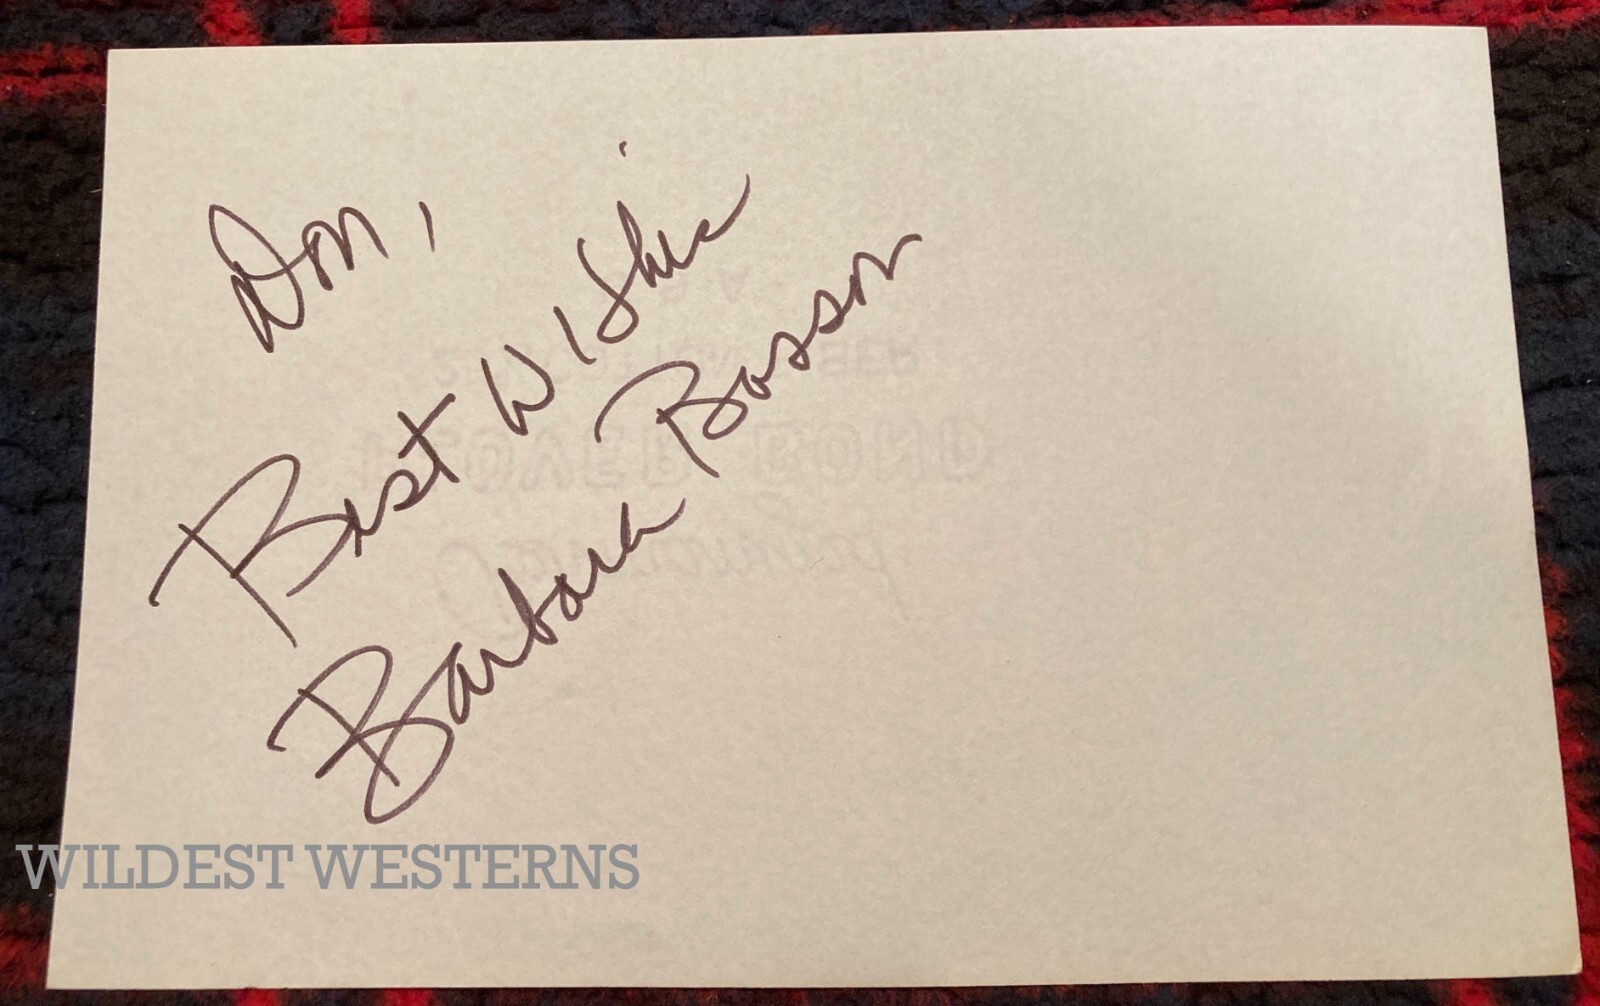 Don,
Best Wishes
Barbara Bosson
HOOVER BOND
WILDEST WESTERNS